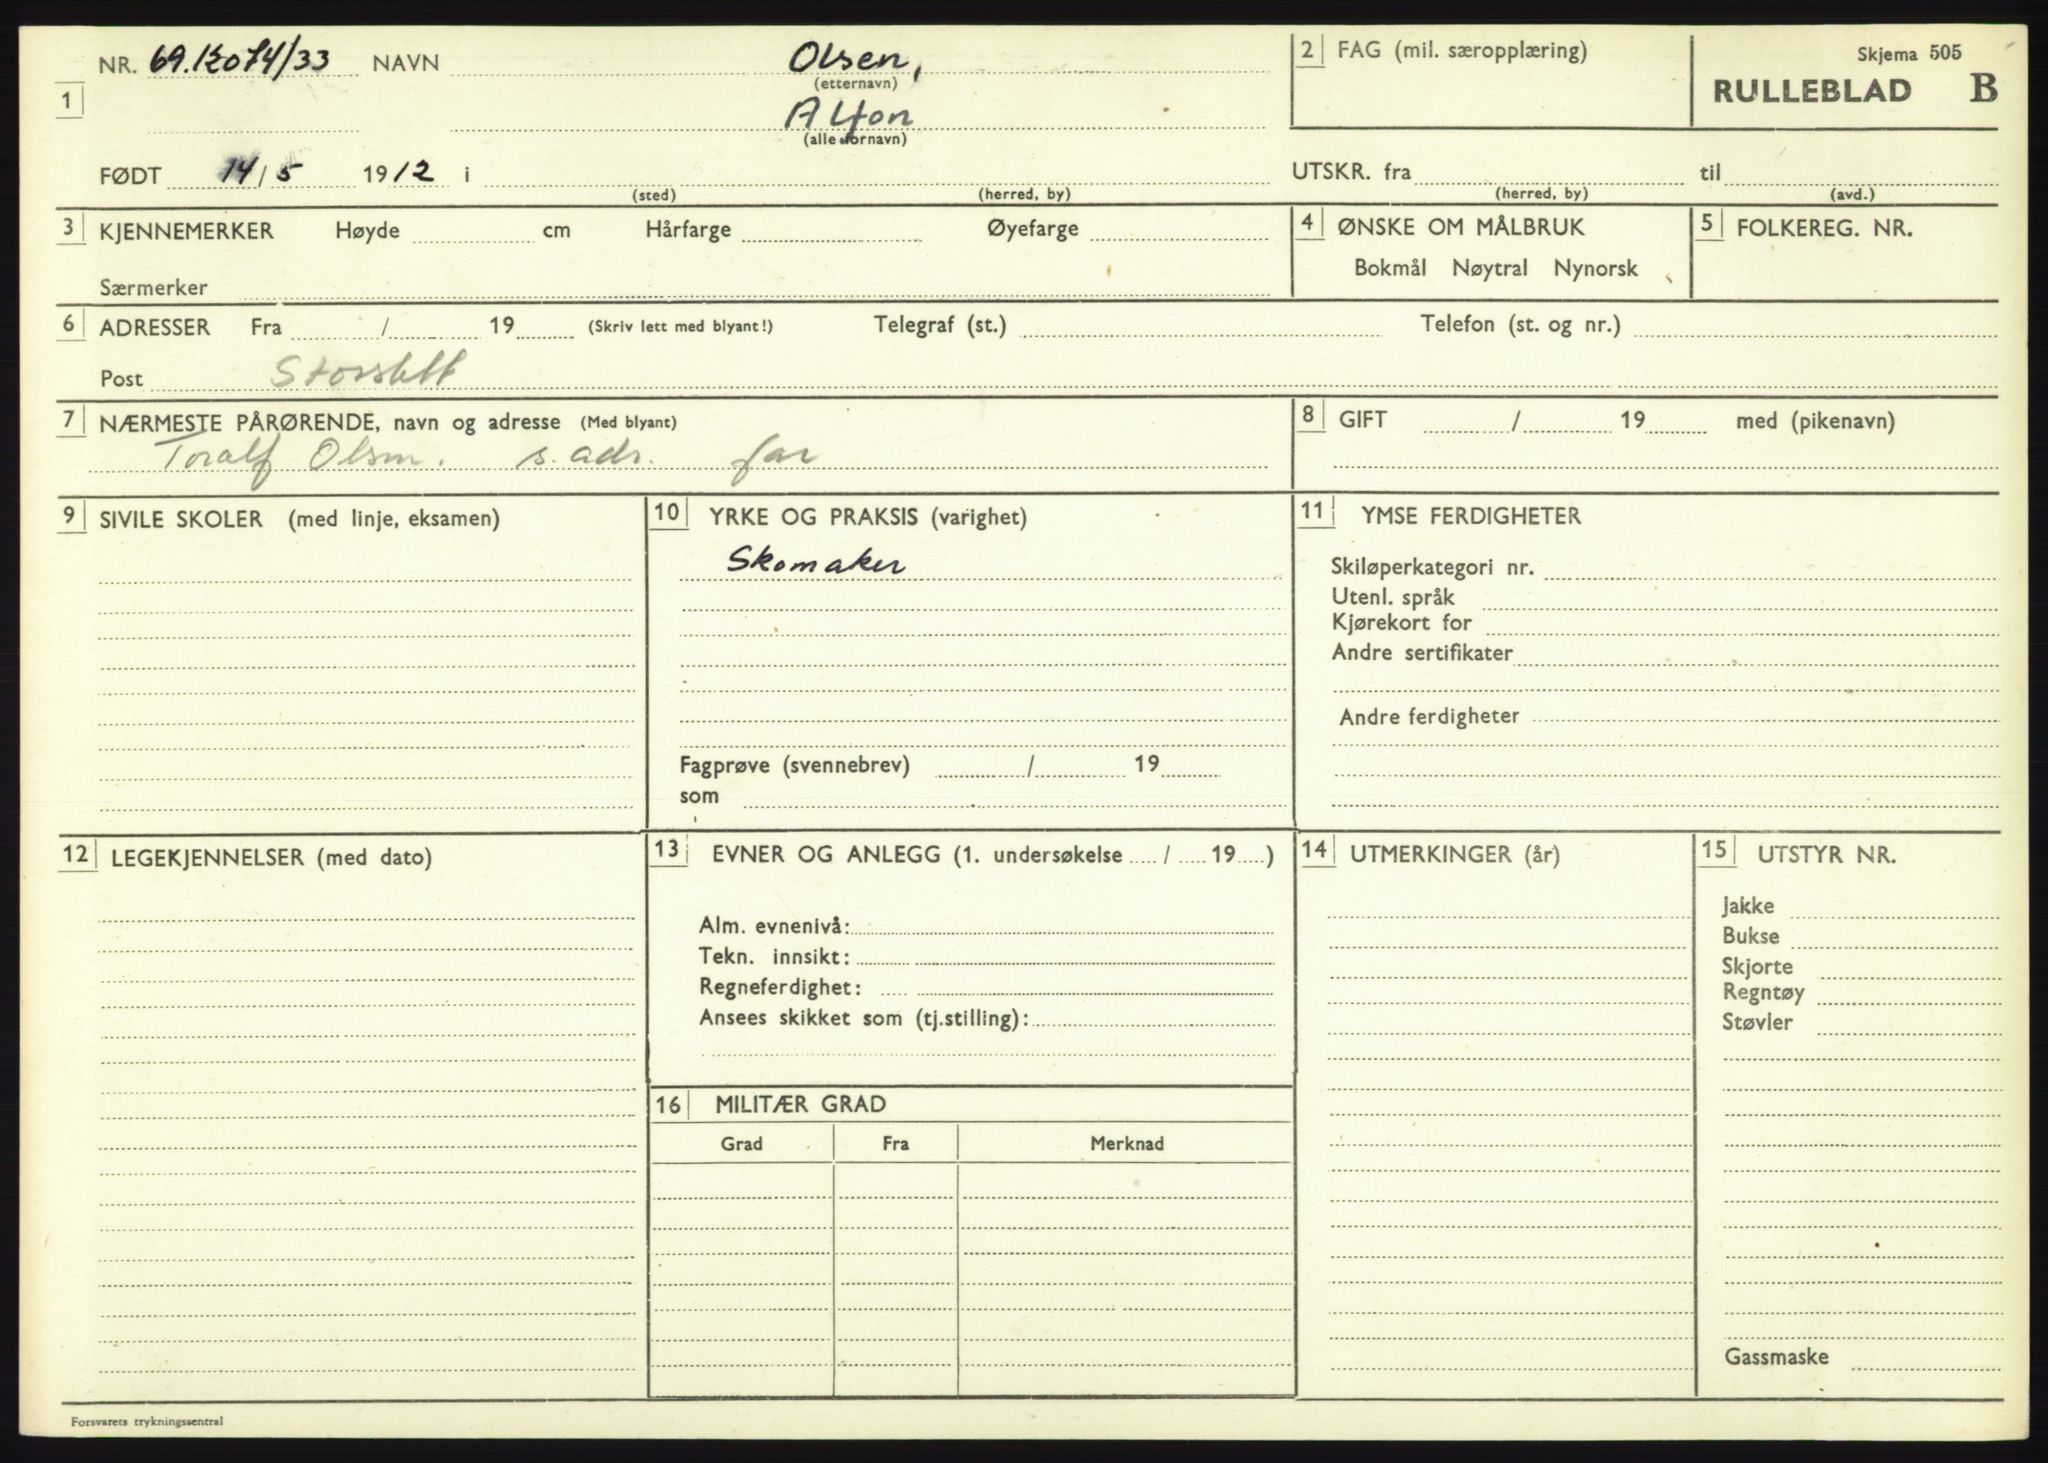 NR. 69.12074/33 NAVN Olsen,
(etternavn)
1
Alfon
(alle fornavn)
FØDT 14/5 1912 i
(sted) (herred, by)
2 FAG (mil. særopplæring)
Skjema 505
RULLEBLAD B
UTSKR. fra til
(herred, by) (avd.)
3 KJENNEMERKER Høyde cm Hårfarge Øyefarge
Særmerker
4 ØNSKE OM MÅLBRUK
Bokmål Nøytral Nynorsk
5 FOLKEREG. NR.
6 ADRESSER Fra / 19 (Skriv lett med blyant!) Telegraf (st.) Telefon (st. og nr.)
Post Storslett
7 NÆRMESTE PÅRØRENDE, navn og adresse (Med blyant)
Toralf Olsen. s. adr. far
8 GIFT / 19 med (pikenavn)
9 SIVILE SKOLER (med linje, eksamen)
10 YRKE OG PRAKSIS (varighet)
Skomaker
Fagprøve (svennebrev) / 19
som
11 YMSE FERDIGHETER
Skiløperkategori nr.
Utenl. språk
Kjørekort for
Andre sertifikater
Andre ferdigheter
12 LEGEKJENNELSER (med dato)
13 EVNER OG ANLEGG (1. undersøkelse / 19 )
Alm. evnenivå:
Tekn. innsikt:
Regneferdighet:
Ansees skikket som (tj.stilling):
14 UTMERKINGER (år)
15 UTSTYR NR.
Jakke
Bukse
Skjorte
Regntøy
Støvler
Gassmaske
16 MILITÆR GRAD
Grad Fra Merknad
Forsvarets trykningssentral